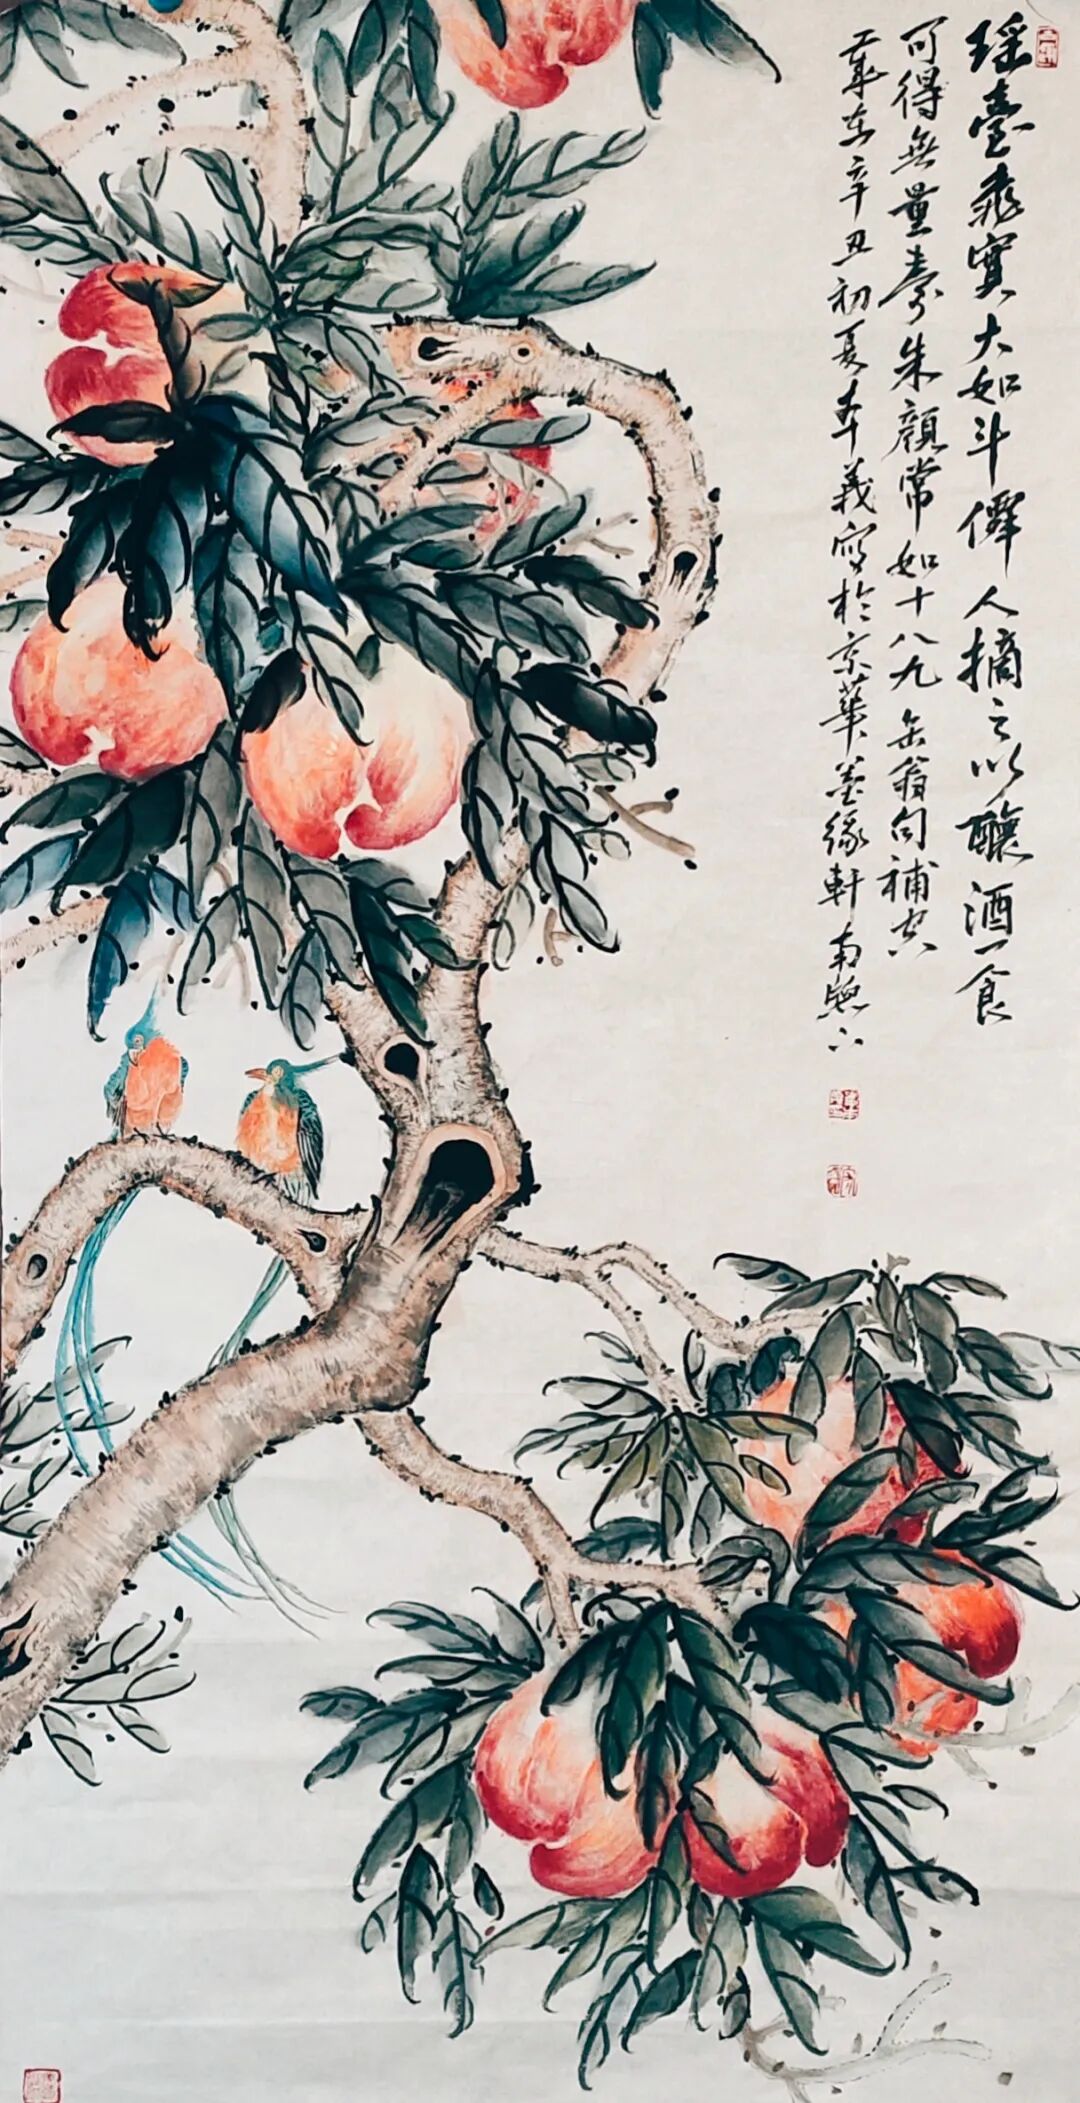 瑶臺乘實大如斗僊人摘之以釀酒一食
可得無量壽朱顏常如十八九 缶翁句補空
歲在辛丑初夏本義寫於京華墨緣軒南窗下